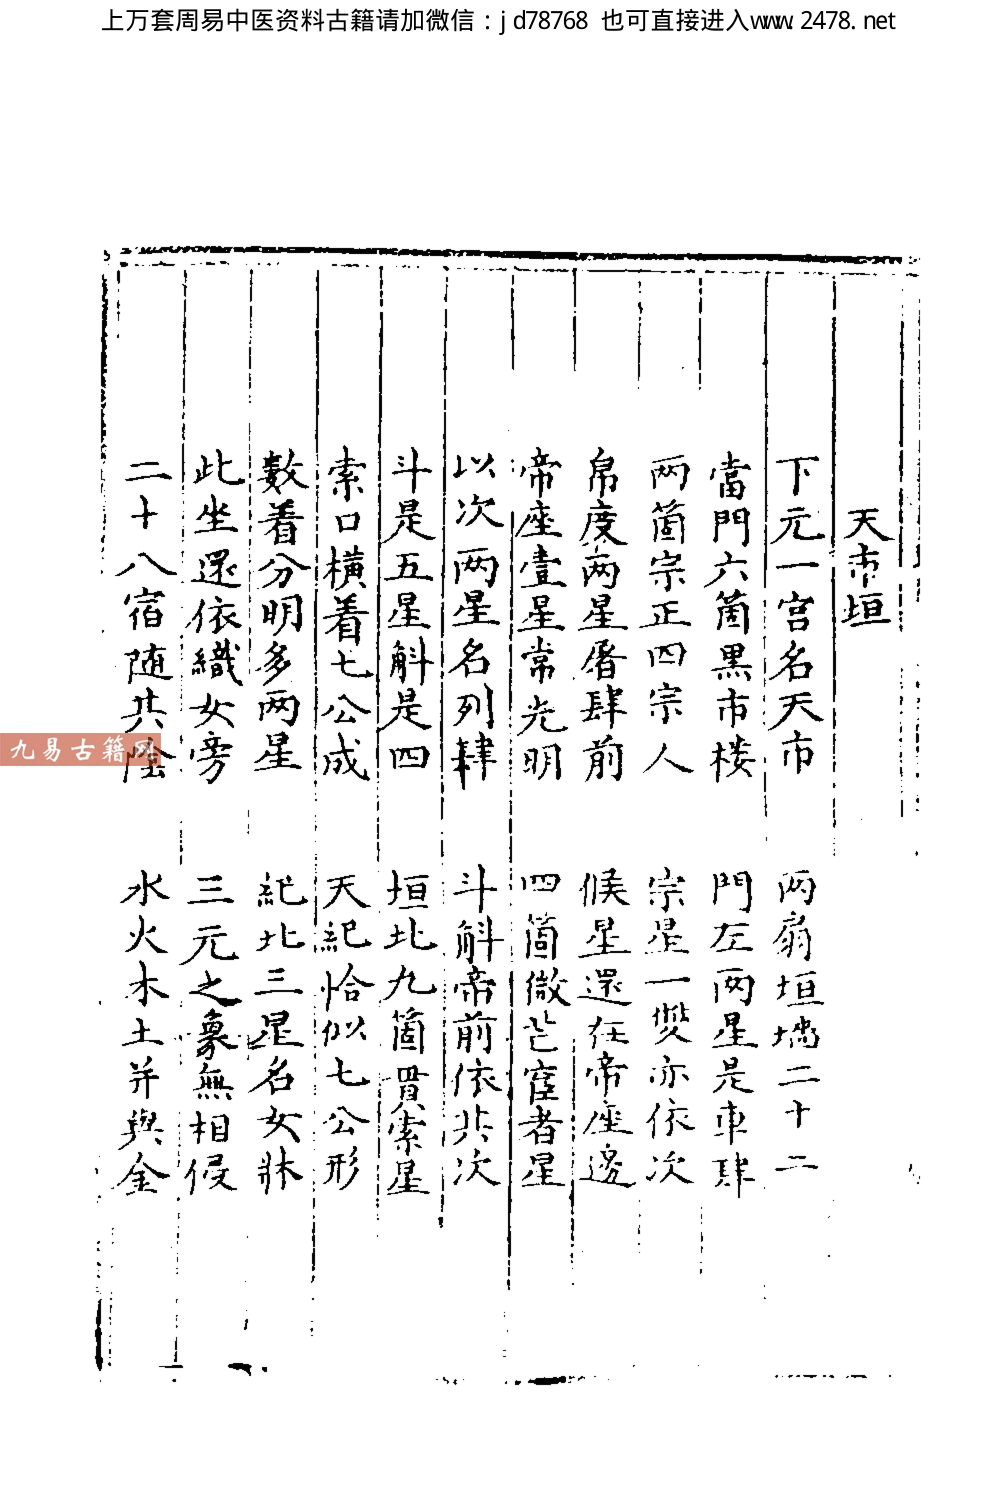 上万套周易中医资料古籍请加微信：jd78768 也可直接进入www.2478.net
天市垣
下元一宫名天市 两扇垣墙二十二
當門六箇黒市楼 門左两星是車肆
两箇宗正四宗人 宗星一㸉亦依次
帛度两星屠肆前 候星還在帝座邊
帝座壹星常光明 四箇微芒宦者星
以次两星名列肆 斗斛帝前依其次
斗是五星斛是四 垣北九箇貫索星
索口横着七公成 天紀恰似七公形
數着分明多两星 紀北三星名女牀
此坐還依織女旁 三元之象無相侵
二十八宿随其陰 水火木土并與金
九易古籍网